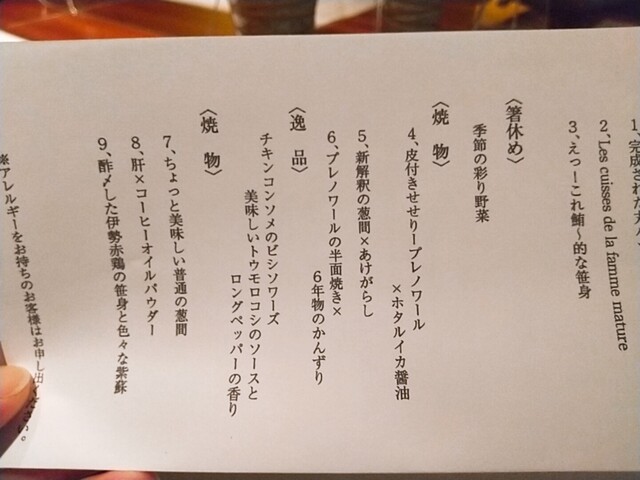 1、完成された
2、Les cuisses de la famme mature
3、えっ！これ鮪〜的な笹身
〈箸休め〉
季節の彩り野菜
〈焼 物〉
4、皮付きせせりープレノワール
×ホタルイカ醤油
5、新解釈の葱間×あけがらし
6、プレノワールの半面焼き×
6年物のかんずり
〈逸 品〉
チキンコンソメのビシソワーズ
美味しいトウモロコシのソースと
ロングペッパーの香り
〈焼 物〉
7、ちょっと美味しい普通の葱間
8、肝×コーヒーオイルパウダー
9、酢〆した伊勢赤鶏の笹身と色々な紫蘇
※アレルギーをお持ちのお客様はお申し出ください。